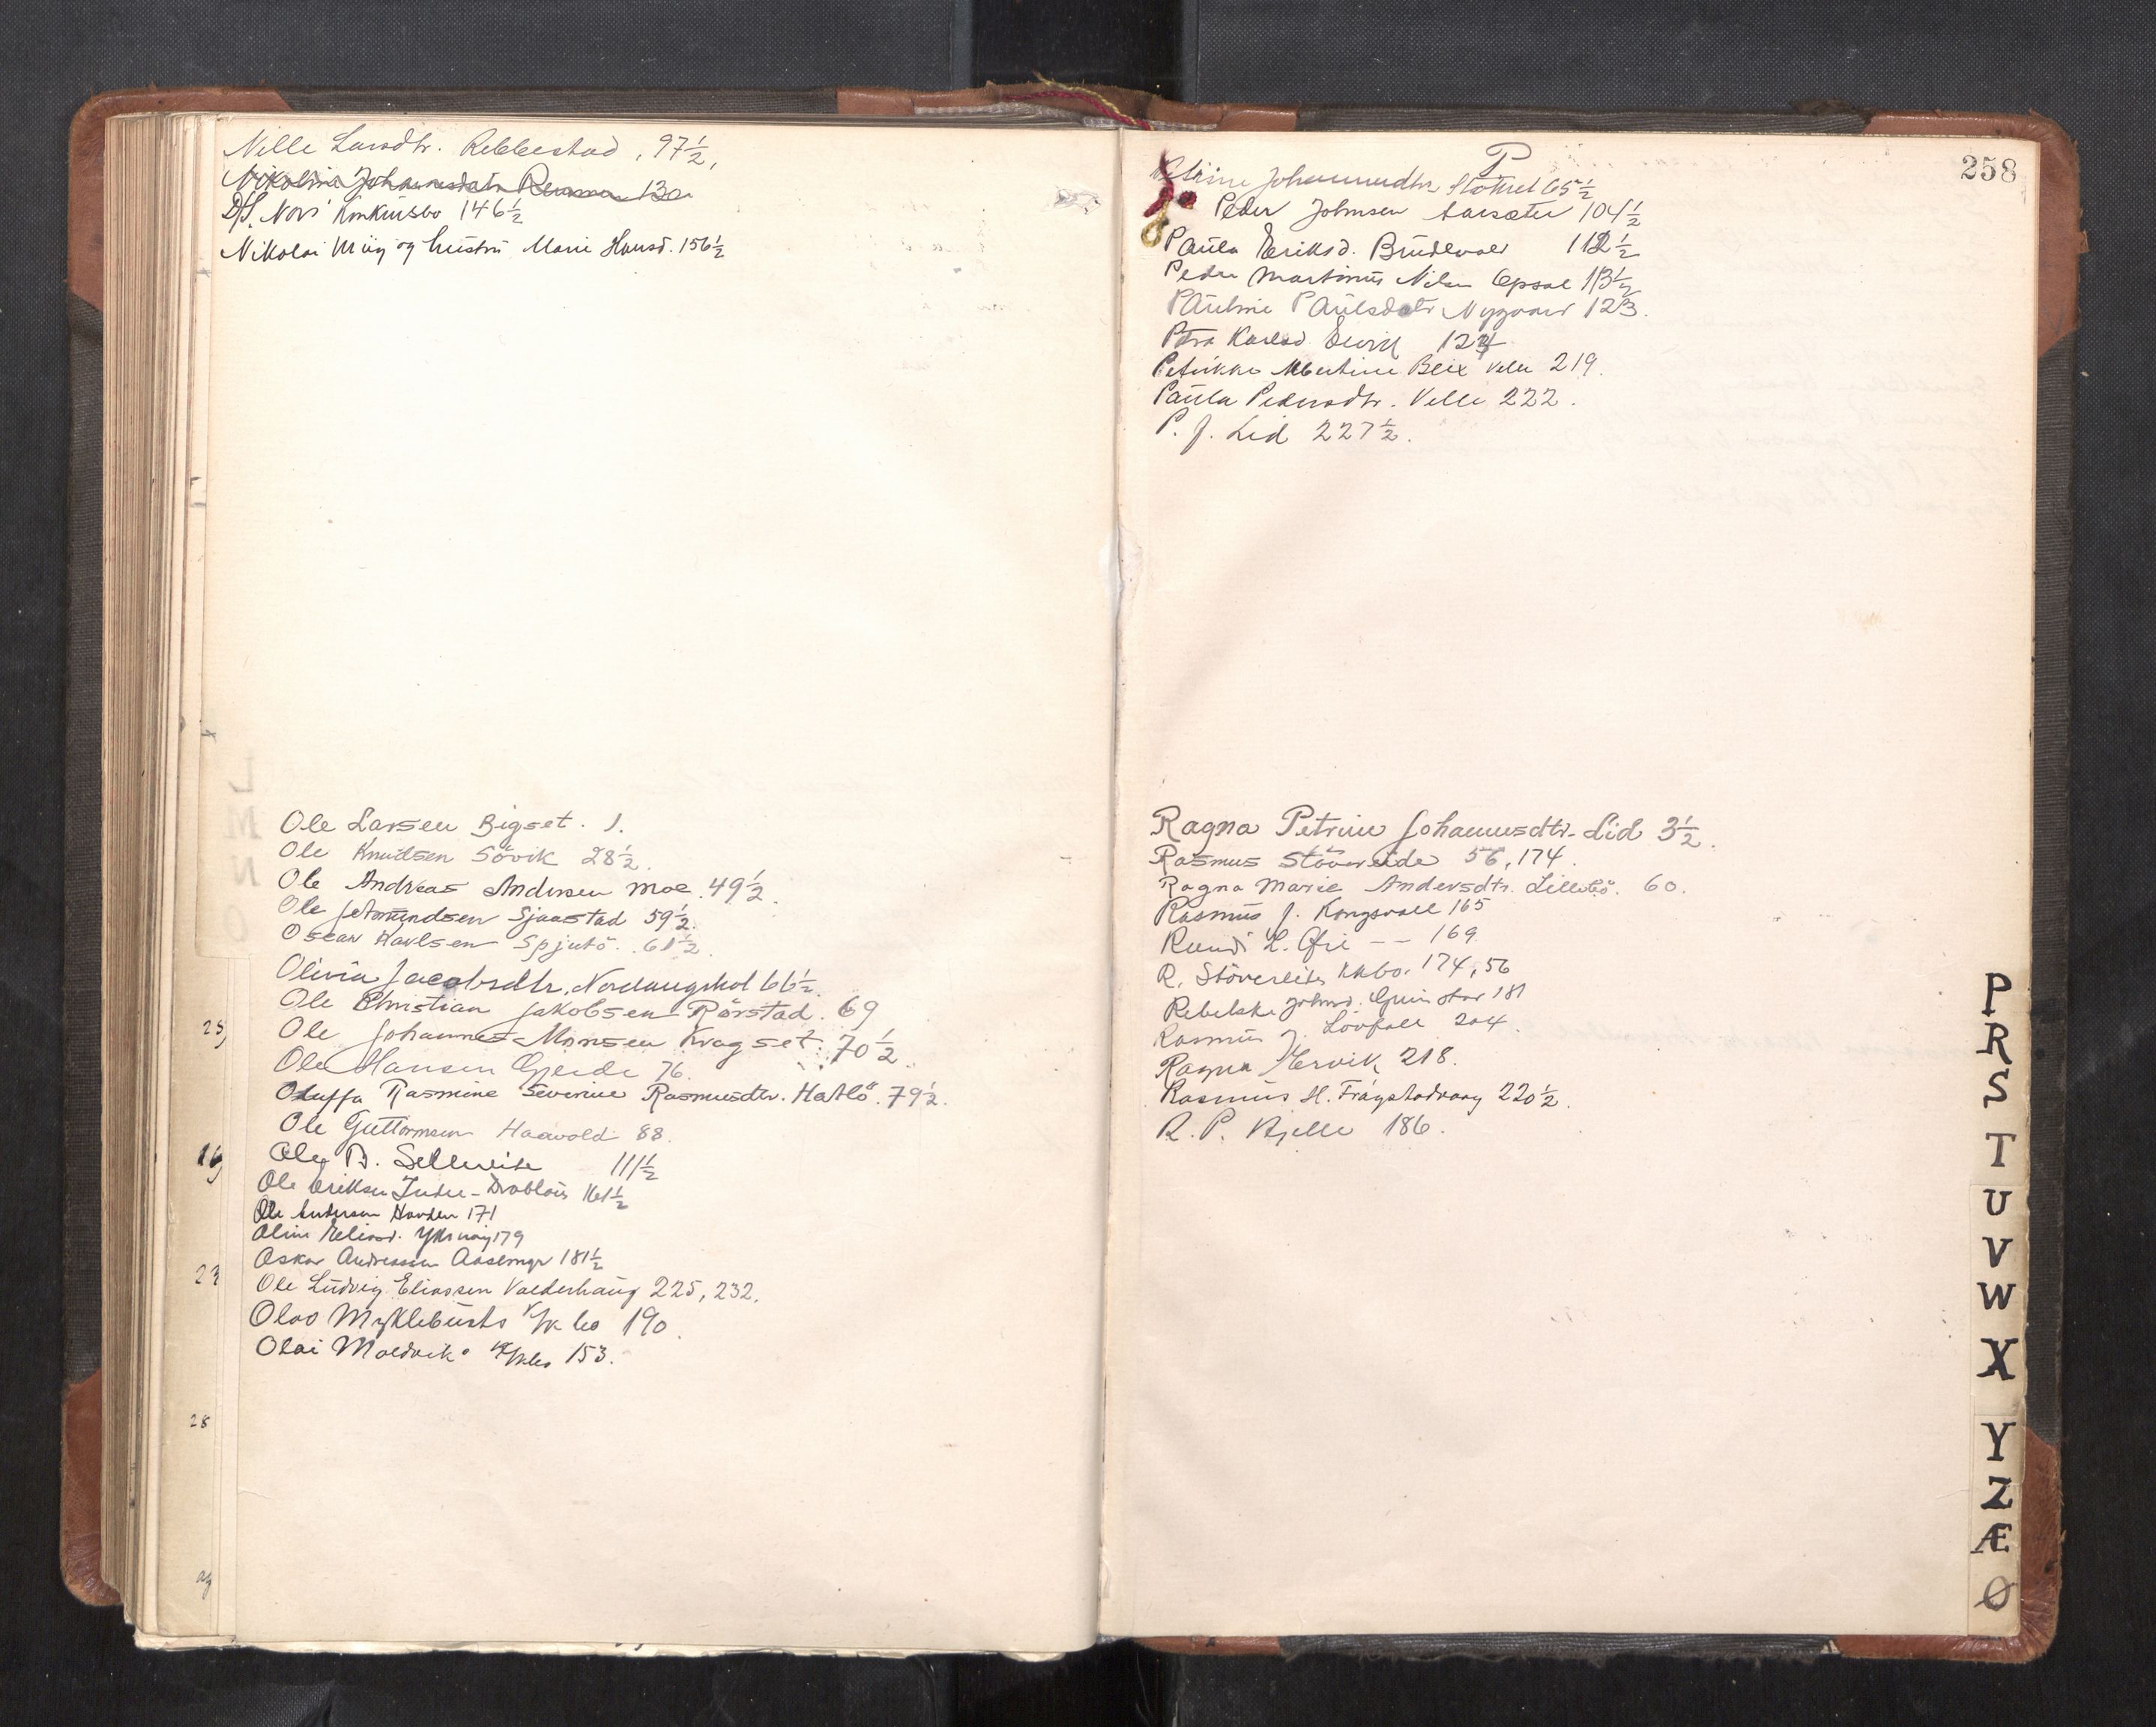 Nille Larsdtr. Rebbestad, 97½,
Nikoline Johannesdatr 130
D/S. Nors Konkursbo 146½
Nikolai Myg og hustru Marie Hansd. 156½
L
M
N
O
Ole Larsen Bigset. 1.
Ole Knudsen Sövik 28½.
Ole Andreas Andersen Moe. 49½.
Ole Jetmundsen Sjaastad 59½.
Oscar Karlsen Spjutö. 61½
Olivia Jacobsdtr. Nordangshol 66½.
Ole Christian Jakobsen Rörstad. 69
Ole Johannes Monsen Kragset. 70½.
Ole Hansen Gjerde 76.
Oluffa Rasmine Severine Rasmusdtr. Hatlö. 79½.
Ole Guttormsen Haavold 88.
Ole 111½
Ole Eriksen Indre-Drabløs 161½
Ole Andersen Hovden 171
Oline Eliasd. 179
Oskar Andreassen 181½
Ole Ludvig Eliassen Valderhaug 225, 232.
Olav Myklebusts k/k bo 190.
Olai Moldvik 153.
25
16
23
28
258
P
Petrine Johannesdtr. 65½
Peder Johnsen Aarsæter 104½
Paula Eriksd. Brudevold 112½
Peder Martinus Nilsen Opsal 113½
Pauline Paulsdatr Nygaard 123.
Petra Karlsd. 124
Petrikke Albertine Beix Velle 219.
Paula Pedersdtr. Velle 222.
P. J. Lid 227½.
Ragna Petrine Johannesdtr. Lid 3½.
Rasmus Støvereide 56, 174.
Ragna Marie Andersdtr. Lillebö. 60.
Rasmus J. Kongsvoll 165
L. 169.
R. Støvereides kkbo. 174, 56
Rebekka Johnsd. 181
Rasmus J. Løvoll 204.
Ragna Hervik 218.
Rasmus H. 220½.
R. P. Kjelle 186.
P
R
S
T
U
V
W
X
Y
Z
Æ
Ø